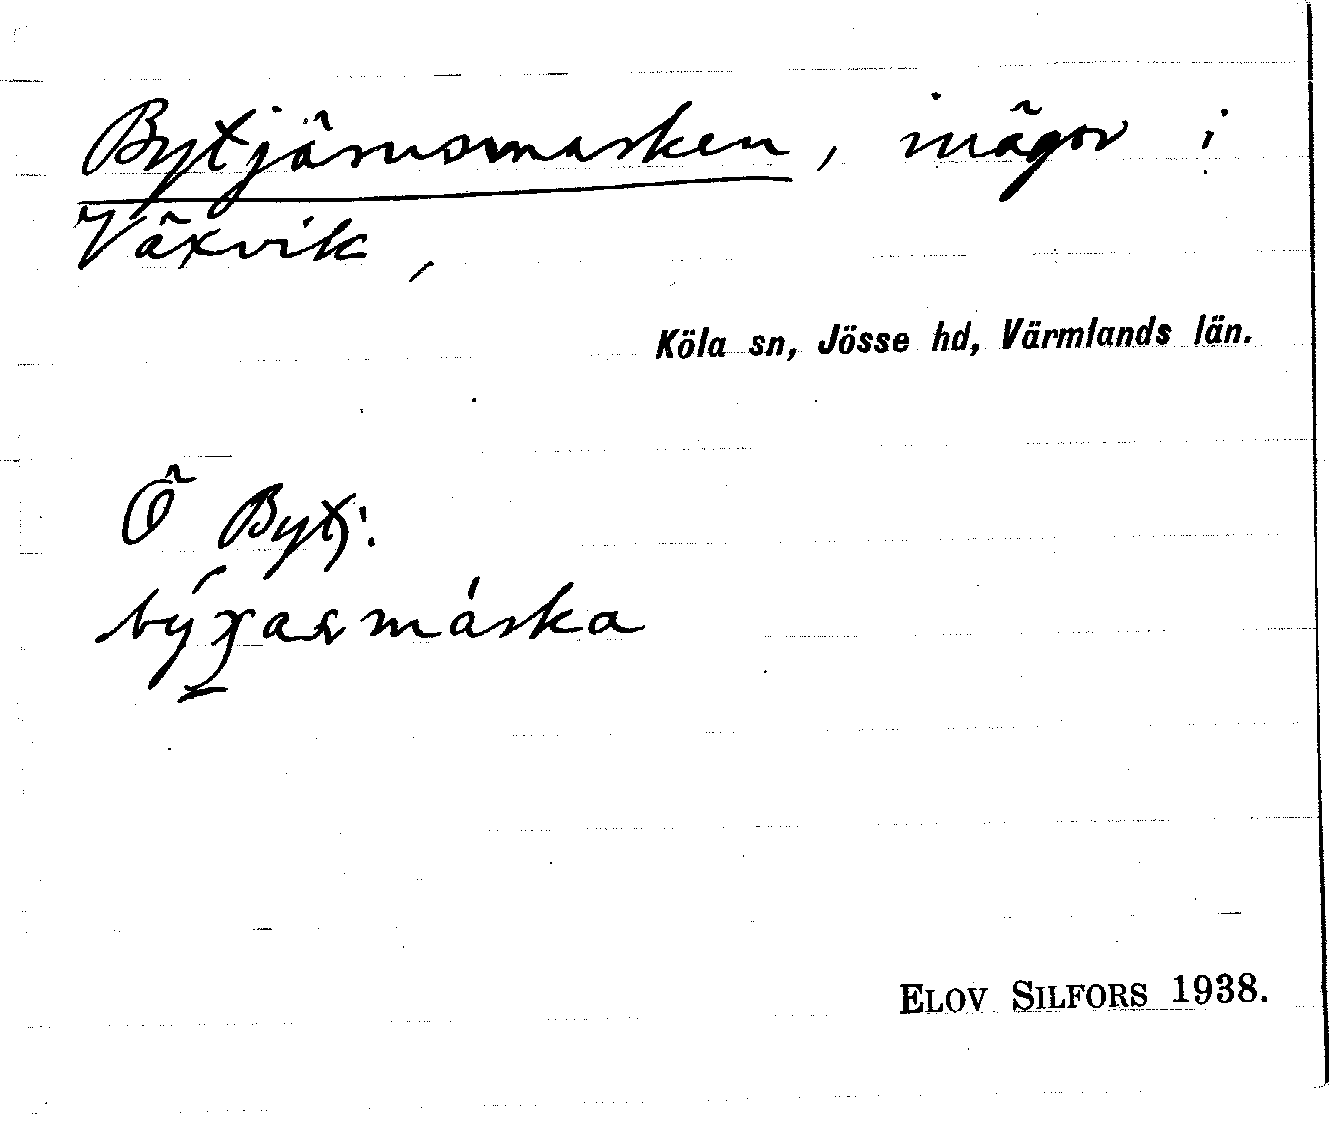 Bytjärnsmarken, inägor i
Växvik,
Köla sn, Jösse hd, Värmlands län.
Ö Bytj.
ELOV SILFORS 1938.